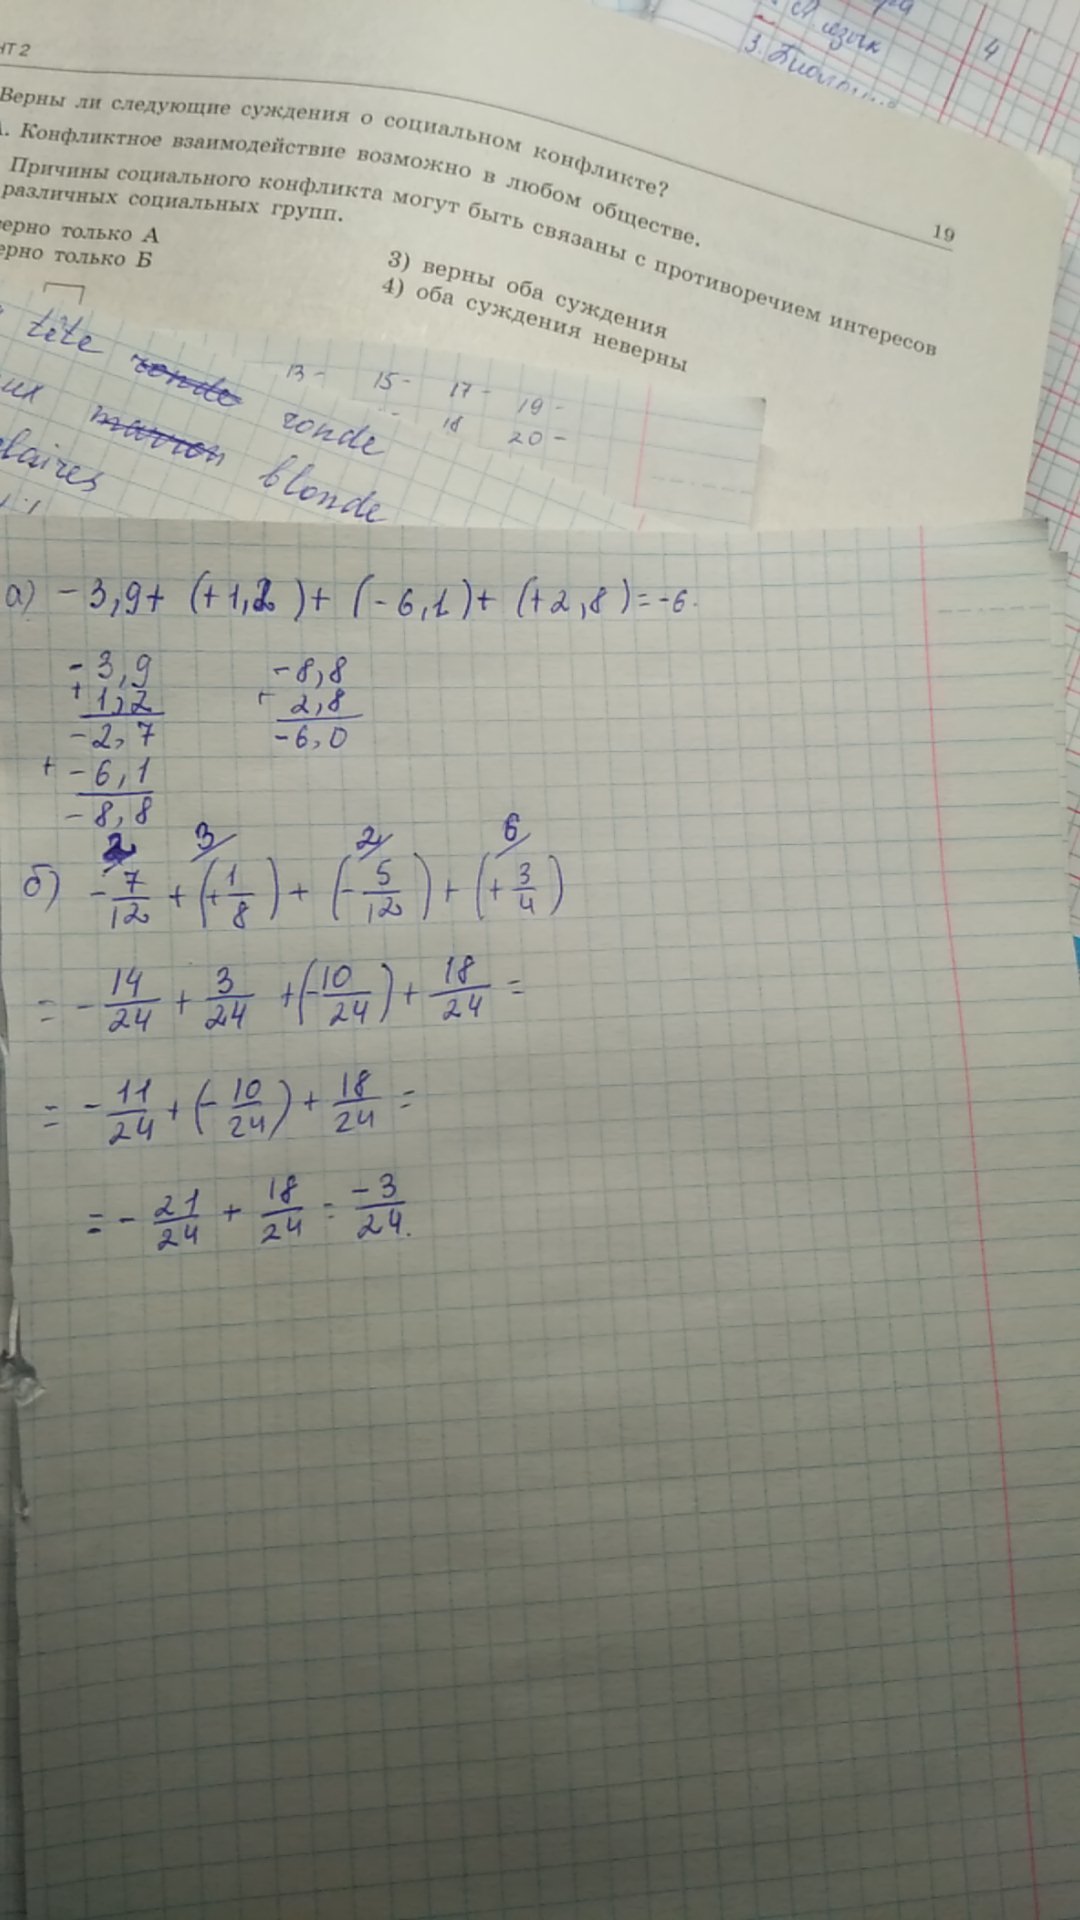 А. язык
4
3. Биология
НТ 2
19
Верны ли следующие суждения о социальном конфликте?
А. Конфликтное взаимодействие возможно в любом обществе.
Причины социального конфликта могут быть связаны с противоречием интересов
различных социальных групп.
ерно только А
ерно только Б
3) верны оба суждения
4) оба суждения неверны
tête ronde ronde
ux marron blonde
claires
13 - 15 - 17 - 19 -
18 20 -
а) - 3,9 + (+1,2) + (-6,1) + (+2,8) = -6.
- 3,9
+ 1,2
-2,7
+ -6,1
-8,8
-8,8
+ 2,8
-6,0
2 3 2 6
б) - 7/12 + (+1/8) + (-5/12) + (+3/4)
= - 14/24 + 3/24 + (-10/24) + 18/24 =
= - 11/24 + (-10/24) + 18/24 =
= - 21/24 + 18/24 = -3/24.